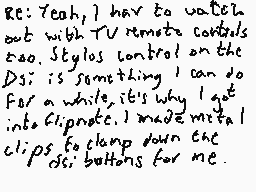 Re: Yeah, I hav to watch
out with TV remote controls
too. Stylos control on the
Dsi is something I can do
For a while, it's why I got
into Flipnote. I made metal
clips to clamp down the
dsi buttons for me.